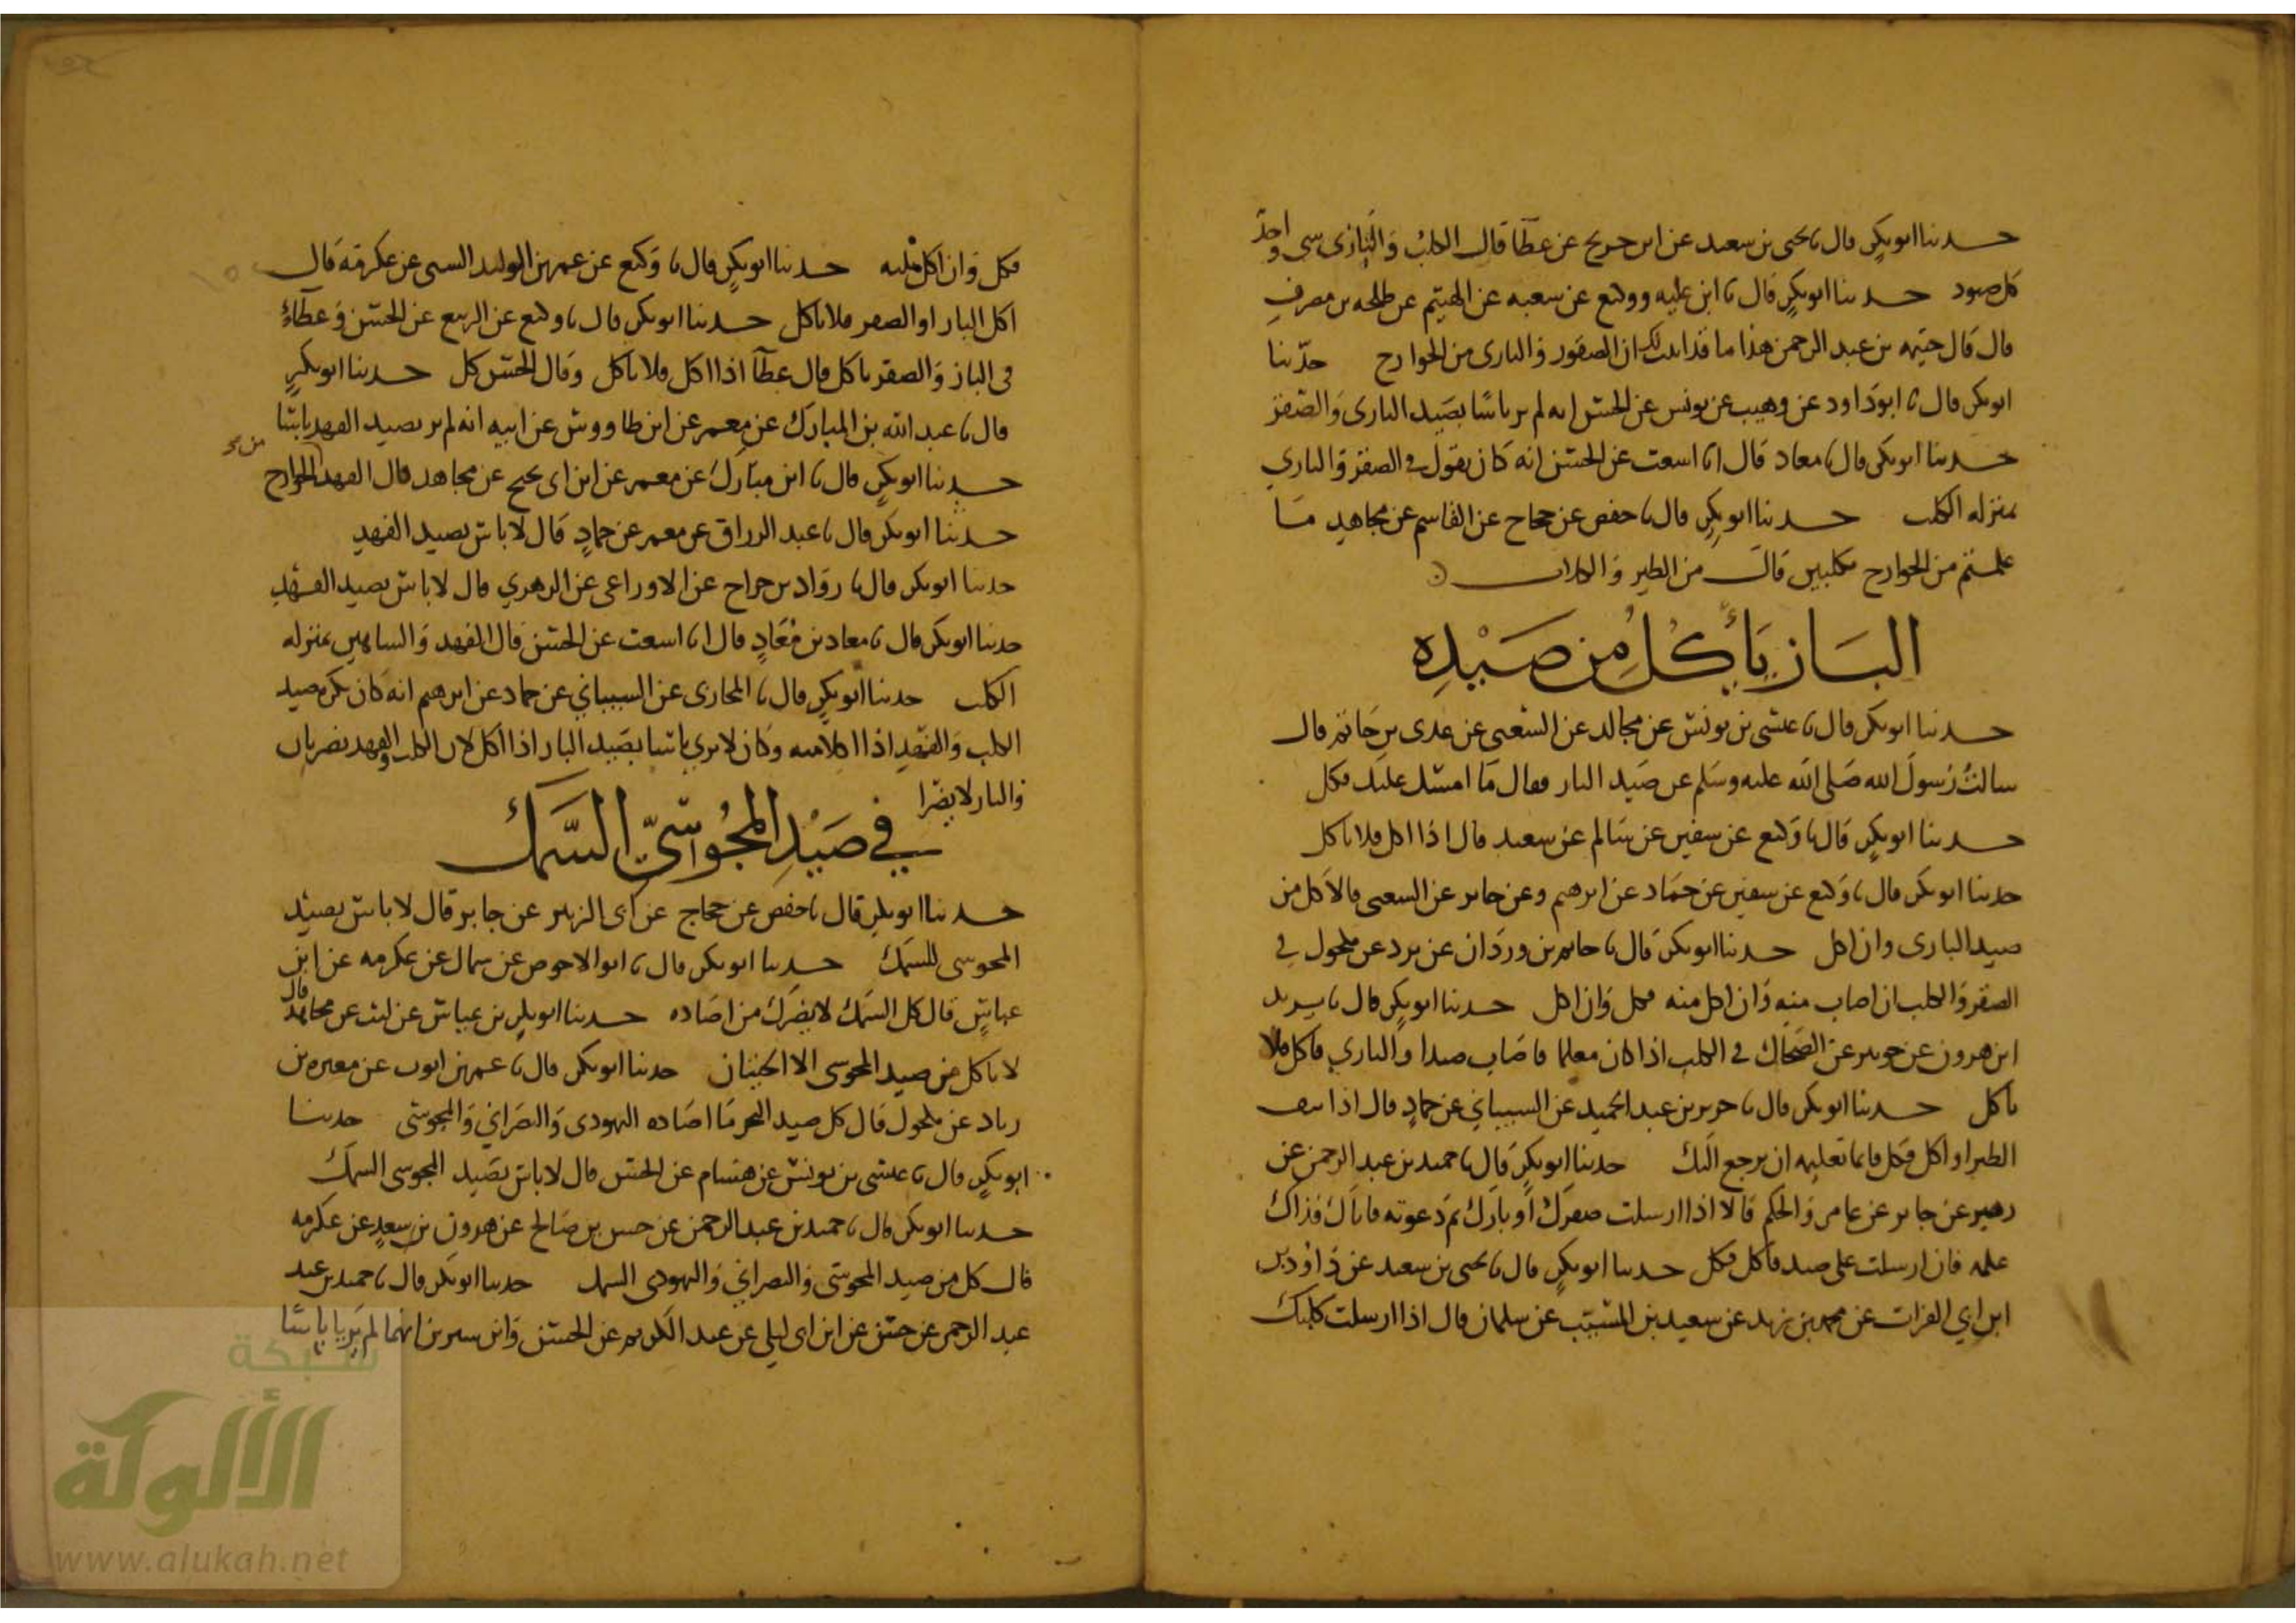 حدثنا ابو بكر قال نا يحيى بن سعيد عن ابن جريج عن عطآ قال الكلبُ وَالبَازى شى واحدٌ
كل صيود حدثنا ابو بكرٍ قال نا ابن عليه ووكيع عن شعبه عن الهيثم عن طلحه بن مصرفٍ
قال قال خيثمه بن عبد الرحمن هذا ما قد اثبت لك ان الصقور والبازى من الجوارح حدّثنا
ابو بكر قال نا ابو دَاود عن وهيب عن يونس عن الحسن انه لم ير باسًا بصَيد البازى وَالصَقر
حدثنا ابو بكر قال نا معاذ قال انا اشعث عن الحسَن انه كان يقول فى الصقر وَالبازي
بمنزله الكلب حدثنا ابو بكرٍ قال نا حفص عن حجاح عن القاسم عن مجاهدٍ مَا
علمتم من الجوارح مكلبين قال من الطير وَالكلاب
البَاز يَأكُلُ مِن صَيْدِه
حدثنا ابو بكر قال نا عيسَى بن يونسَ عن مجالد عن الشعبى عن عدى بن حَاتم قال
سالتُ رَسولَ الله صَلى الله عليه وسَلم عن صَيد الباز فقال مَا امسَك عليك فكل
حدثنا ابو بكرٍ قال نا وَكيع عن سفين عن سَالم عن سعيد قال اذا اكل فلا تاكل
حدثنا ابو بكر قال نا وَكيع عن سفين عن حمَاد عن ابرهيم وعن جابر عن الشعبى قالا كل من
صيد البازى وان اكل حدثنا ابو بكر قال نا حاتم بن وردَان عن برد عن مكحول فى
الصقر وَالكلب ان اصاب منه وَان اكل منه فكل وَان اكل حدثنا ابو بكرٍ قال نا يزيد
ابن هرون عن جويبر عن الضحَاك فى الكلب اذا كان معلما فاصَاب صيدا وَالبازي فاكل فلا
تاكل حدثنا ابو بكر قال نا جرير بن عبد الحميد عن الشيباني عن حمادٍ قال اذا نتف
الطير او اكل فكل فانما تعليمه ان يرجع اليك حدثنا ابو بكرٍ قال نا حميد بن عبد الرحمن عن
زهير عن جابر عن عامر وَالحكم قالا اذا ارسلت صقرَك او بازَك ثم دَعوته فاتاك فذاك
علمه فان ارسلت على صيد فاكل فكل حدثنا ابو بكرٍ قال نا يحيى بن سعيد عن دَاوُد بن
ابن ابي الفرات عن محمد بن زيد عن سعيد بن المسَيّب عن سلمان قال اذا ارسلت كلبَك
فكل وَان اكل ثلثيه حدثنا ابو بكرٍ قال نا وَكيع عن عمر بن الوليد السنى عن عكرمَة قال
اكل الباز او الصقر فلا تاكل حدثنا ابو بكر قال نا وكيع عن الربيع عن الحسَن وَعطآءٍ
فى الباز وَالصقر ياكل قال عطآ اذا اكل فلا تاكل وَقال الحسَن كل حدثنا ابو بكرٍ
قال نا عبد الله بن المبارَك عن معمر عن ابن طاووسَ عن ابيه انه لم ير بصيد الفهد باسًا
حدثنا ابو بكرٍ قال نا ابن مبَارَك عن معمر عن ابن ابى نجيح عن مجاهد قال الفهد من الجوارح
حدثنا ابو بكر قال نا عبد الرزاق عن معمر عن حمادٍ قال لا باسَ بصيد الفهدِ
حدثنا ابو بكر قال نا روّاد بن جراح عن الاوزاعى عن الزهري قال لا باسَ بصيد الفهدِ
حدثنا ابو بكر قال نا معاذ بن مُعَاذٍ قال انا اشعث عن الحسَن قال الفهد وَالشاهين بمنزله
الكلب حدثنا ابو بكرٍ قال نا المحاربى عن الشيباني عن حماد عن ابرهيم انه كان يكره صيد
الكلب وَالفَهدِ اذا اكلا منه وَكان لا يرى باسا بصَيد الباز اذا اكل لان الكلب والفهد يضريان
وَالباز لا يضرا
في صَيْدِ المجُوسّيِ السَّمَكَ
حدثنا ابو بكر قال نا حفص عن حجاج عن ابى الزبير عن جابر قال لا باسَ بصيد
المجوسى للسَمك حدثنا ابو بكر قال نا ابو الاحوص عن سمال عن عكرمه عن ابن
عباسٍ قال كل السَمَك لا يضرَك من اصَاده حدثنا ابو بكر بن عياش عن ليث عن مجاهد قال
لا تاكل من صيد المجوسى الا الحيتان حدثنا ابو بكر قال نا عمر بن ايوب عن مغيره بن
زياد عن مكحول قال كل صيد البحر مَا اصَاده اليهودى وَالنصَراني وَالمجوسَى حدثنا
ابو بكرٍ قال نا عيسَى بن يونسَ عن هشام عن الحسَن قال لا باسَ بصَيد المجوسى السمَك
حدثنا ابو بكر قال نا حميد بن عبد الرحمن عن حسن بن صَالح عن هرون بن سعدٍ عن عكرمه
قال كل من صيد المجوسَى وَالنصرانى وَاليهودى السمك حدثنا ابو بكر قال نا حميد بن عبد
عبد الرحمن عن حسَن عن ابن ابى ليلى عن عبد الكريم عن الحسَن وَابن سيرين انهما لم يَريا باسًا